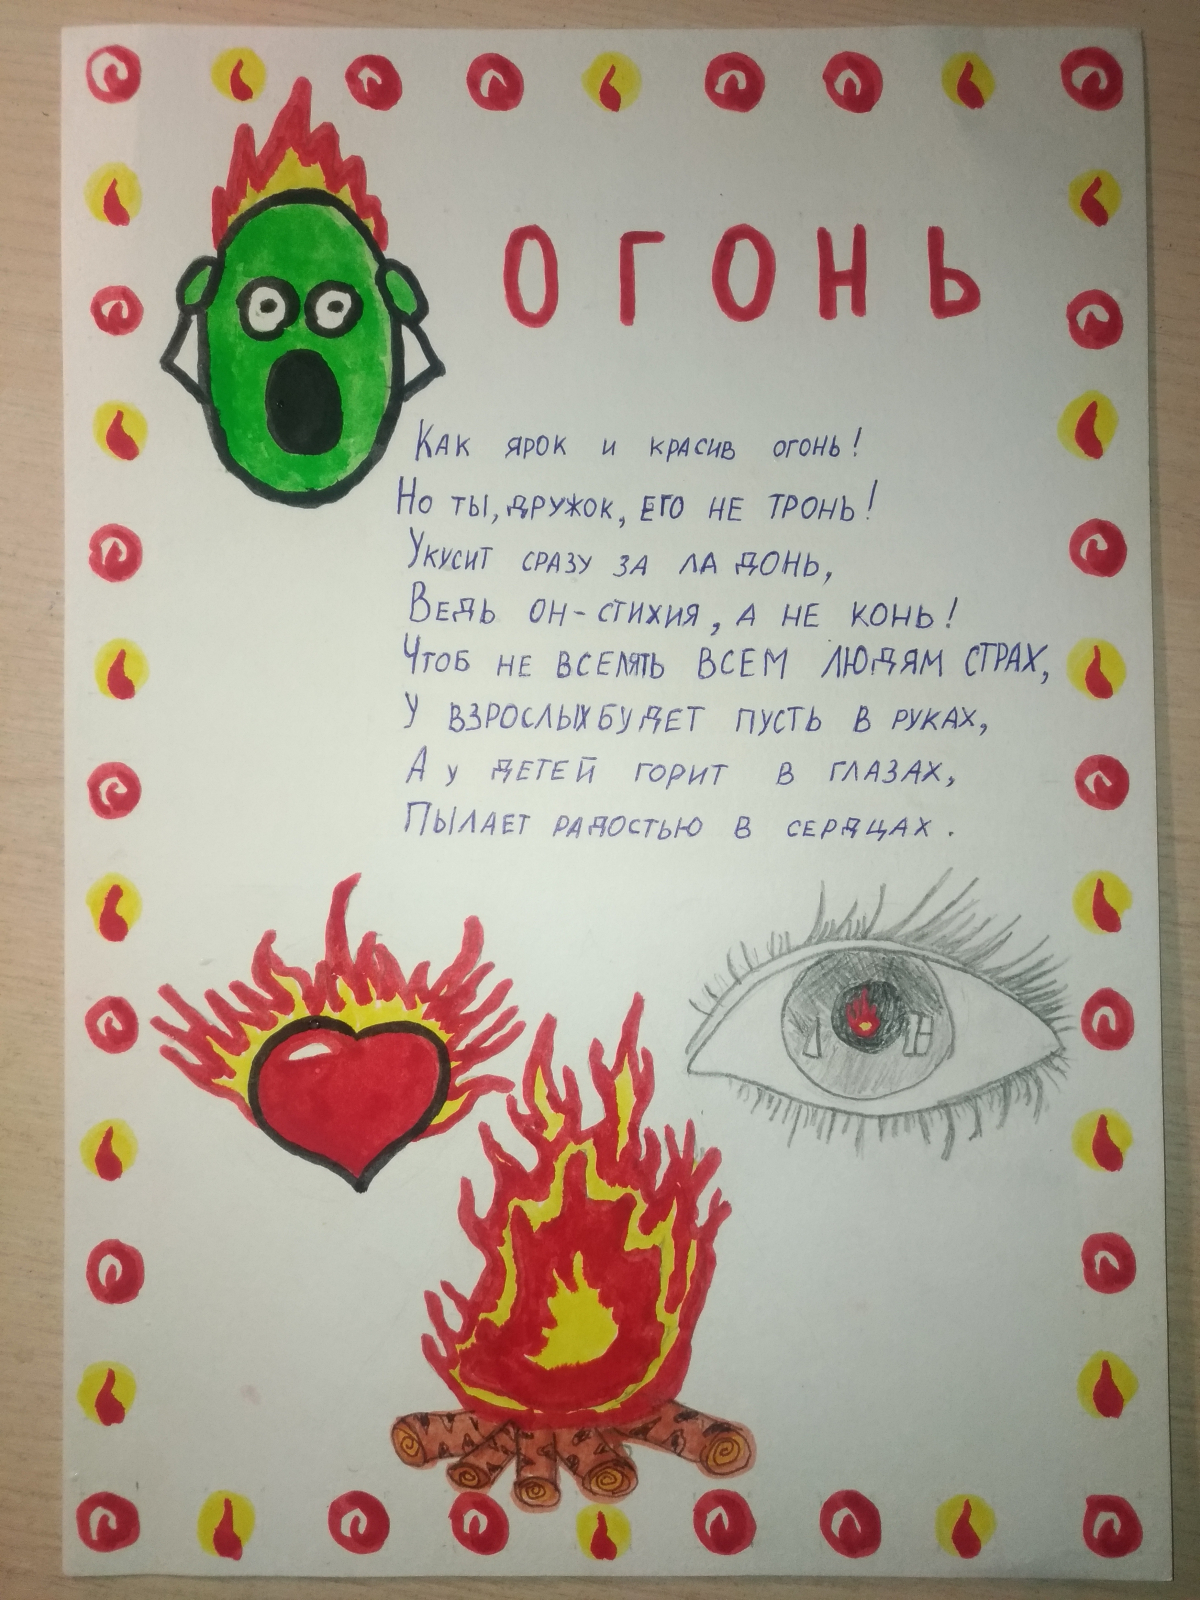 ОГОНЬ
Как ярок и красив огонь!
Но ты, дружок, его не тронь!
Укусит сразу за ладонь,
Ведь он - стихия, а не конь!
Чтоб не вселять всем людям страх,
У взрослых будет пусть в руках,
А у детей горит в глазах,
Пылает радостью в сердцах.